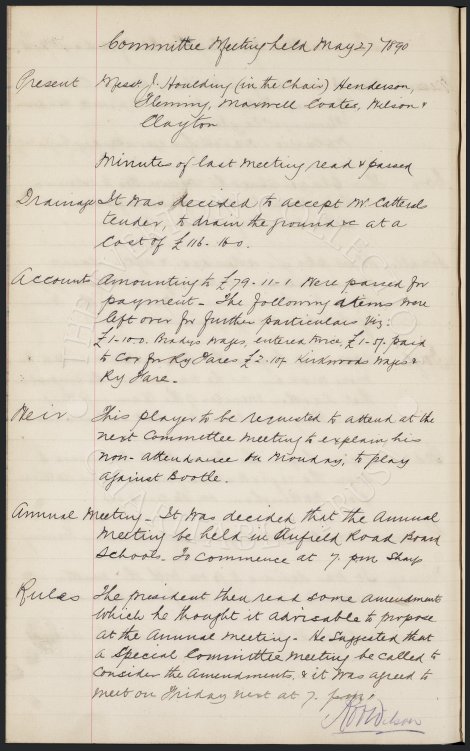 Committee Meeting held May 27 1890
Present Messrs J. Houlding (in the Chair) Henderson,
Flemming, Maxwell Coates, Wilson &
Clayton
Minutes of last meeting read & passed
Drainage It was decided to accept Mr Catteral
tender, to drain the ground &c at a
cost of £116-16-0.
Account Amounting to £79-11-1 were passed for
payment - The following items were
left over for further particulars viz:
£1-10-0. Bradys wages, entered twice, £1-5/- paid
to Cox for Ry Fares £2-10/- Kirkwoods wages &
Ry Fare.
Weir This player to be requested to attend at the
next Committee Meeting to explain his
non-attendance on Monday, to play
against Bootle.
Annual Meeting - It was decided that the Annual
Meeting be held in Anfield Road Board
Schools. To commence at 7. pm Sharp
Rules The president then read some amendment
which he thought it advisable to propose
at the Annual Meeting - He suggested that
a Special Committee Meeting be called to
consider the Amendments, & it was agreed to
meet on Friday next at 7. pm.
Wilson